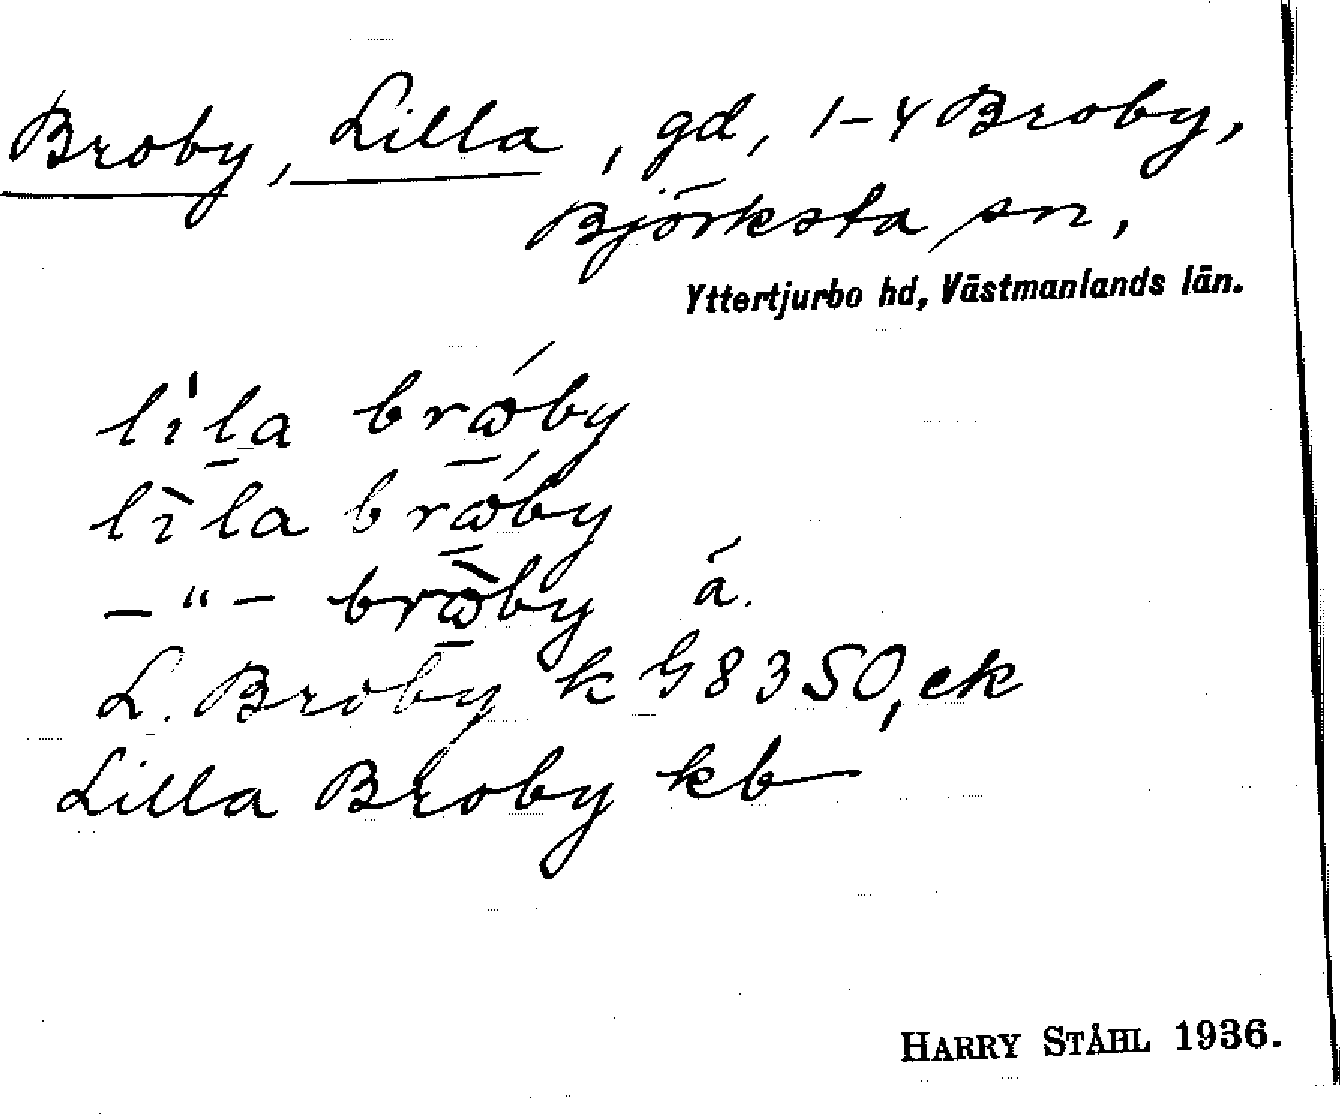 Broby, Lilla, gd, 1-4 Broby,
Björksta sn,
Yttertjurbo hd, Västmanlands län.
lila
lìla
-"- ä.
L. Broby k G8350, ek
Lilla Broby kb
HARRY STÅHL 1936.